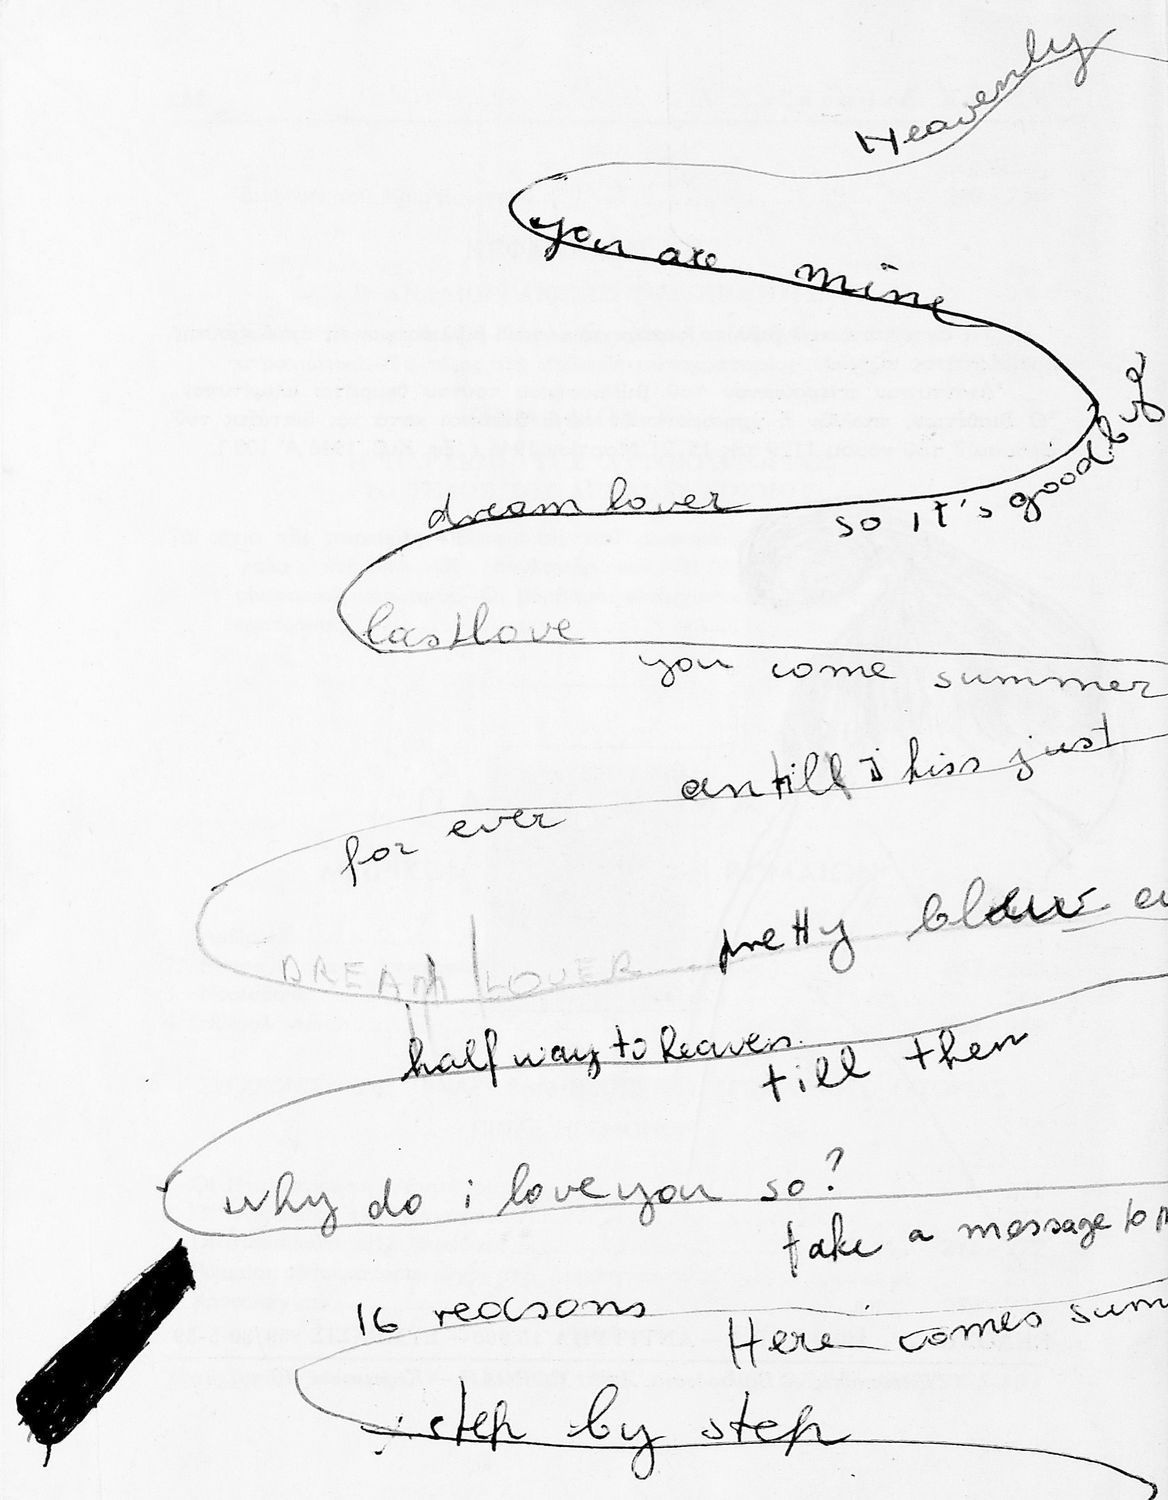 Heavenly
you are mine
dream lover
so it's goodbye
last love
you come summer
antill i kiss just
for ever
pretty blew
DREAM LOVER
half way to heaven
till then
why do i love you so?
take a message to
16 reasons
Here comes sum
step by step